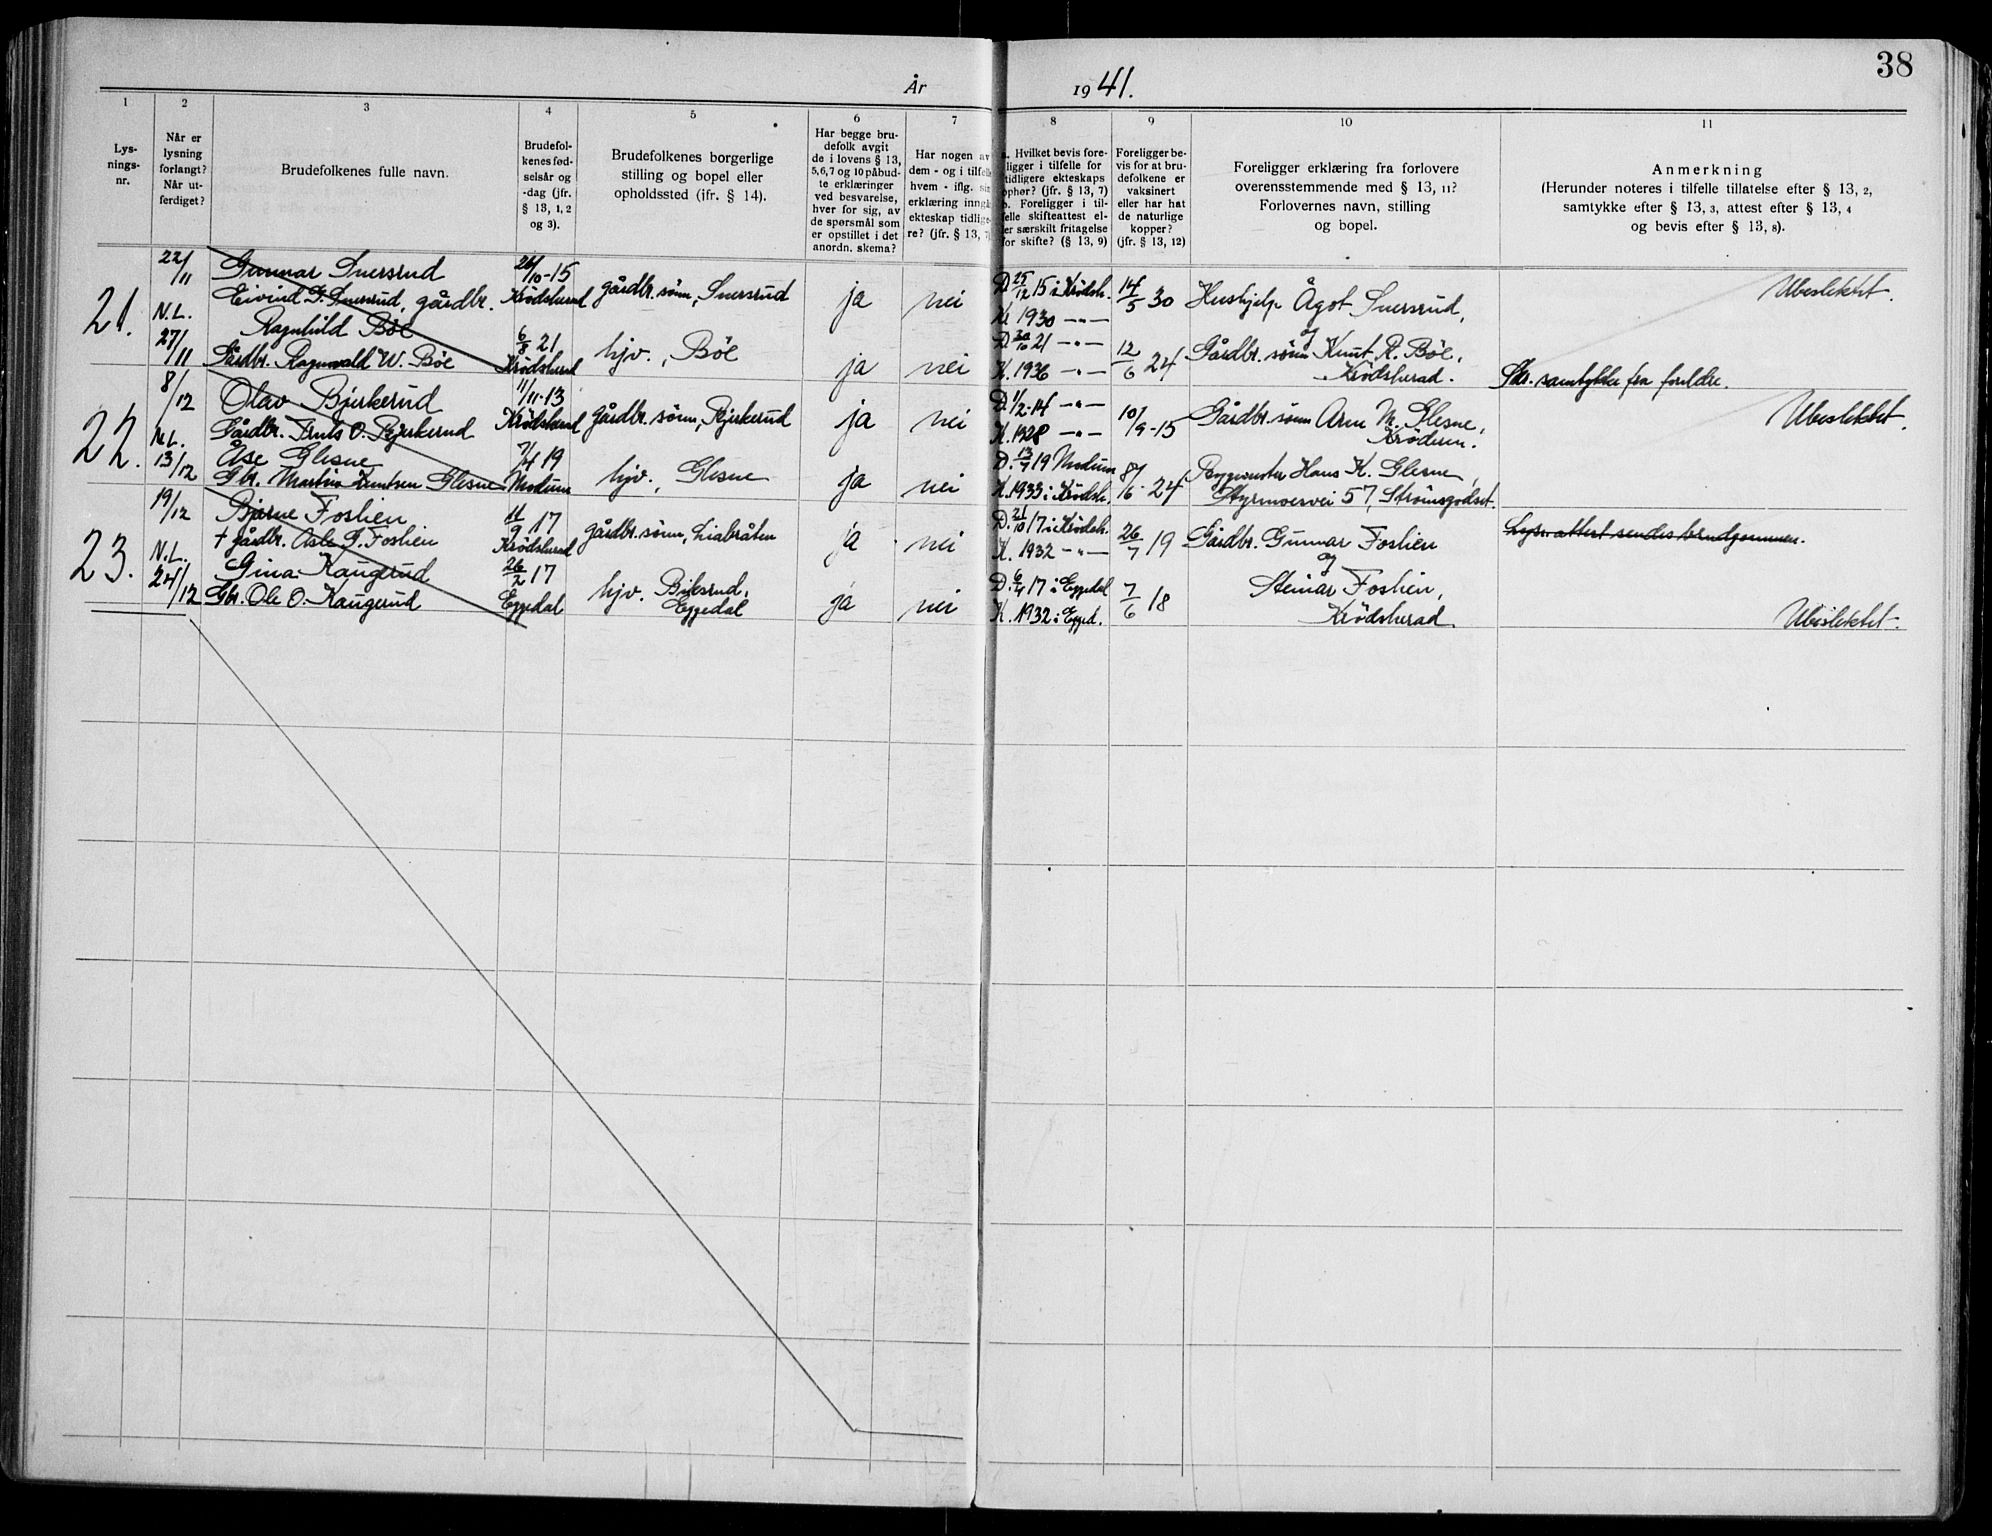 38
År 1941.
1 2 3 4 5 6 7 8 9 10 11
Lys-
nings-
nr.
Når er
lysning
forlangt?
Når ut-
ferdiget?
Brudefolkenes fulle navn.
Brudefol-
kenes fød-
selsår og
-dag (jfr.
§ 13, 1, 2
og 3).
Brudefolkenes borgerlige
stilling og bopel eller
opholdssted (ifr. § 14).
Har begge bru-
defolk avgit
de i lovens § 13,
5,6,7 og 10 påbud-
te erklæringer
ved besvarelse,
hver for sig, av
de spørsmål som
er opstillet i det
anordn. skema?
Har nogen av
dem - og i tilfelle
hvem - iflg. sin
erklæring inngå
ekteskap tidlige-
re? (jfr. § 13, 7)
a. Hvilket bevis fore-
ligger i tilfelle for
tidligere ekteskaps
ophør? (jfr. § 13, 7)
b. Foreligger i til-
felle skifteattest el-
ler særskilt fritagelse
for skifte? (§ 13, 9)
Foreligger be-
vis for at bru-
defolkene er
vaksinert
eller har hat
de naturlige
kopper?
(jfr. § 13, 12)
Foreligger erklæring fra forlovere
overensstemmende med § 13, 11?
Forlovernes navn, stilling
og bopel.
Anmerkning
(Herunder noteres i tilfelle tillatelse efter § 13, 2,
samtykke efter § 13, 3, attest efter § 13, 4
og bevis efter § 13, 8).
21.
22/11 Gunnar Snersrud 26/10-15 gårdbr. sønn, Snersrud ja nei D. 25/12 15 i Krødsh. 14/5 30 Hushjelp Ågot Snersrud, Ubeslektet.
N.L. Eivind G. Snersrud, gårdbr. Krødsherad K. 1930 -"- og
27/11 Ragnhild Bøe 6/8 21 hjv., Bøe ja nei D. 30/10 21 -"- 12/6 24 Gårdbr. sønn Knut R. Bøe,
Gårdbr. Ragnvald W. Bøe Krødsherad K. 1936 -"- Krødsherad. Skr. samtykke fra foreldre.
22.
8/12 Olav Bjerkerud 11/11-13 gårdbr. sønn, Bjerkerud ja nei D. 1/2-14 -"- 10/9-15 Gårdbr. sønn Arne M. Glesne, Ubeslektet.
N.L. Gårdbr. Truls O. Bjerkerud Krødsherad K. 1928 -"- Krøderen.
13/12 Åse Glesne 7/4 19 hjv., Glesne ja nei D. 13/7 19 Modum 8/16-24 Byggmester Hans K. Glesne,
Gbr. Martin Knutsen Glesne Modum K. 1933 i Krødsh. Styrmoesvei 57, Strømsgodset.
23.
19/12 Bjarne Foslien 11/9 17 gårdbr. sønn, Liabråten ja nei D. 21/10 17 i Krødsh. 26/7 19 Gårdbr. Gunnar Foslien Lysn. attest sendes brudgommen.
N.L. † gårdbr. Asle G. Foslien Krødsherad K. 1932 -"- og
24/12 Gina Kaugerud 26/2 17 hjv. Bilesrud, ja nei D. 6/4 17 i Eggedal 7/6 18 Steinar Foslien,
Gbr. Ole O. Kaugerud Eggedal Eggedal K. 1932 i Egged. Krødsherad. Ubeslektet.